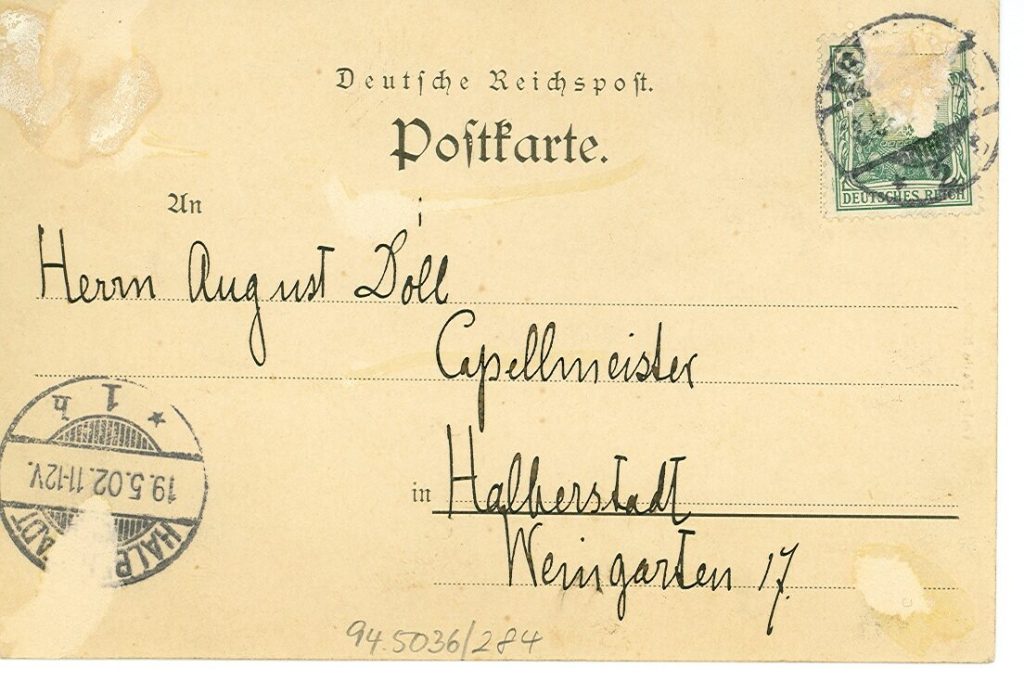 Deutsche Reichspost.
Postkarte.
DEUTSCHES REICH
An
Herrn August Doll
Capellmeister
in Halberstadt
Weingarten 17.
1 h
19.5.02.11-12V.
94.5036/284